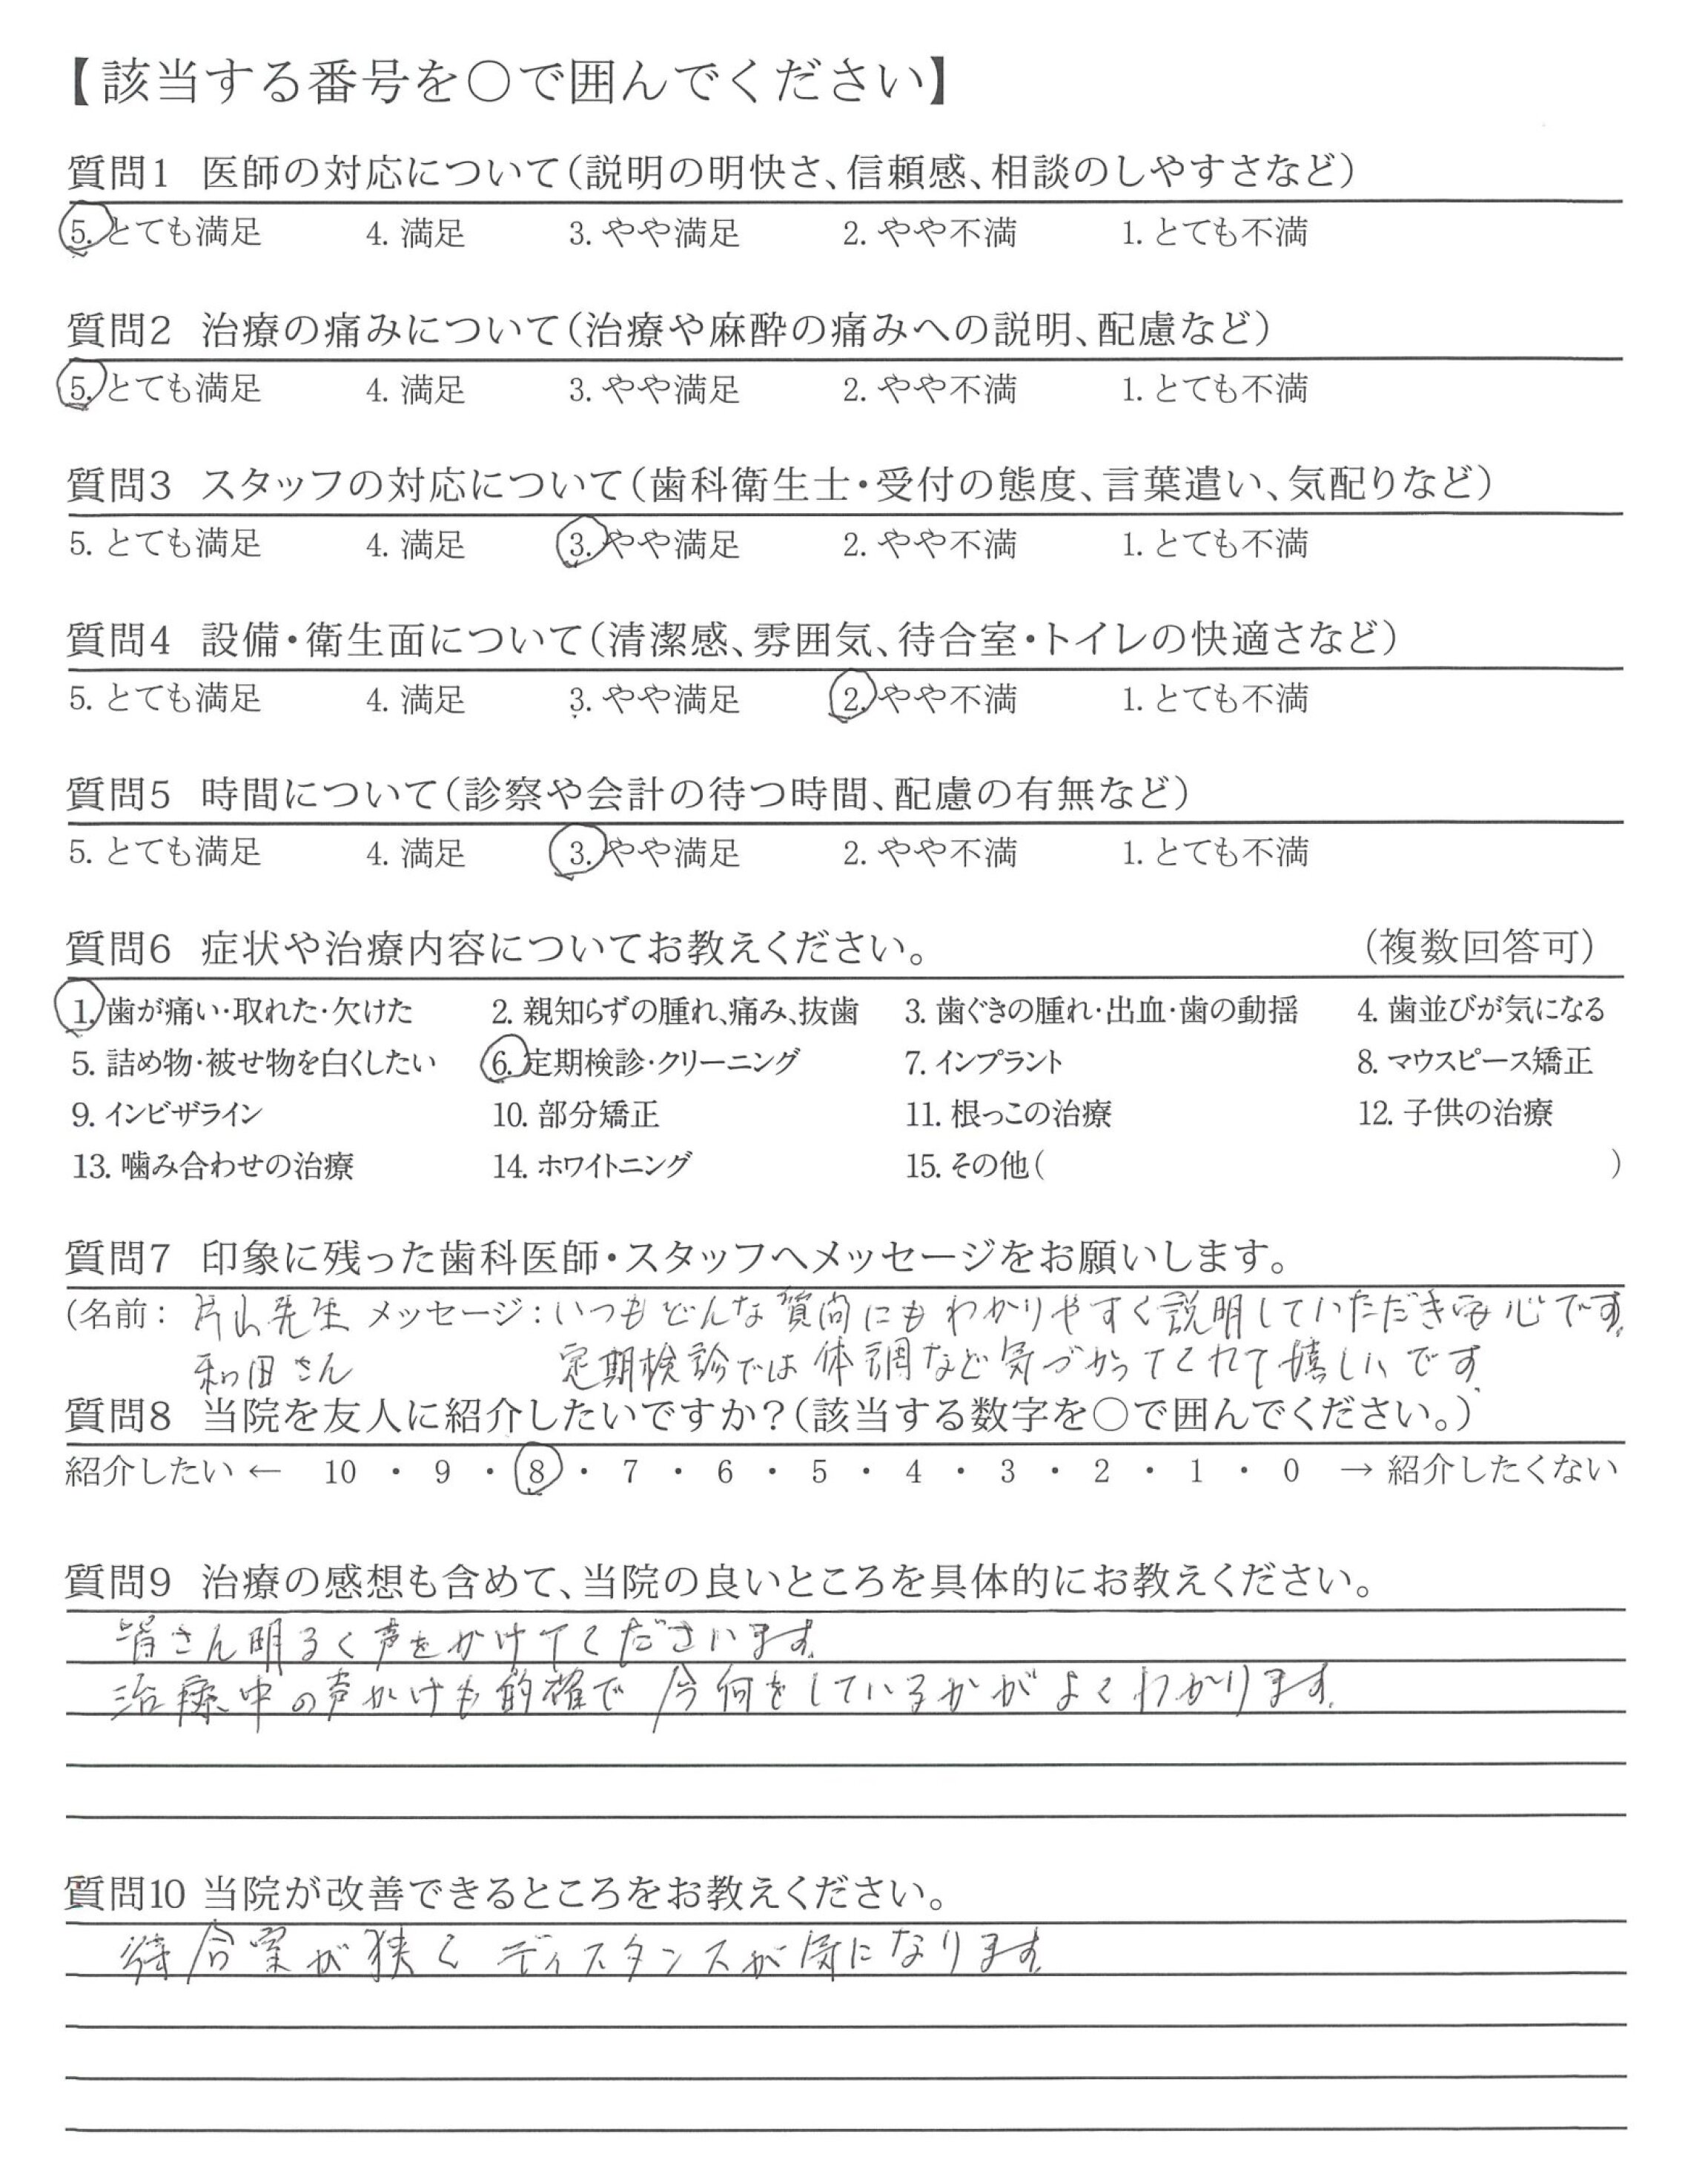 【該当する番号を○で囲んでください】
質問1 医師の対応について(説明の明快さ、信頼感、相談のしやすさなど)
5. とても満足 4. 満足 3. やや満足 2. やや不満 1. とても不満
質問2 治療の痛みについて(治療や麻酔の痛みへの説明、配慮など)
5. とても満足 4. 満足 3. やや満足 2. やや不満 1. とても不満
質問3 スタッフの対応について(歯科衛生士・受付の態度、言葉遣い、気配りなど)
5. とても満足 4. 満足 3. やや満足 2. やや不満 1. とても不満
質問4 設備・衛生面について(清潔感、雰囲気、待合室・トイレの快適さなど)
5. とても満足 4. 満足 3. やや満足 2. やや不満 1. とても不満
質問5 時間について(診察や会計の待つ時間、配慮の有無など)
5. とても満足 4. 満足 3. やや満足 2. やや不満 1. とても不満
質問6 症状や治療内容についてお教えください。 (複数回答可)
1. 歯が痛い・取れた・欠けた 2. 親知らずの腫れ、痛み、抜歯 3. 歯ぐきの腫れ・出血・歯の動揺 4. 歯並びが気になる
5. 詰め物・被せ物を白くしたい 6. 定期検診・クリーニング 7. インプラント 8. マウスピース矯正
9. インビザライン 10. 部分矯正 11. 根っこの治療 12. 子供の治療
13. 噛み合わせの治療 14. ホワイトニング 15. その他( )
質問7 印象に残った歯科医師・スタッフへメッセージをお願いします。
(名前: 片山先生 メッセージ: いつもどんな質問にもわかりやすく説明していただき安心です。
和田さん 定期検診では体調など気づかってくれて嬉しいです。
質問8 当院を友人に紹介したいですか?(該当する数字を○で囲んでください。)
紹介したい ← 10 ・ 9 ・ 8 ・ 7 ・ 6 ・ 5 ・ 4 ・ 3 ・ 2 ・ 1 ・ 0 → 紹介したくない
質問9 治療の感想も含めて、当院の良いところを具体的にお教えください。
皆さん明るく声をかけてくださいます。
治療中の声かけも的確で今何をしているかがよくわかります。
質問10 当院が改善できるところをお教えください。
待合室が狭くディスタンスが気になります。